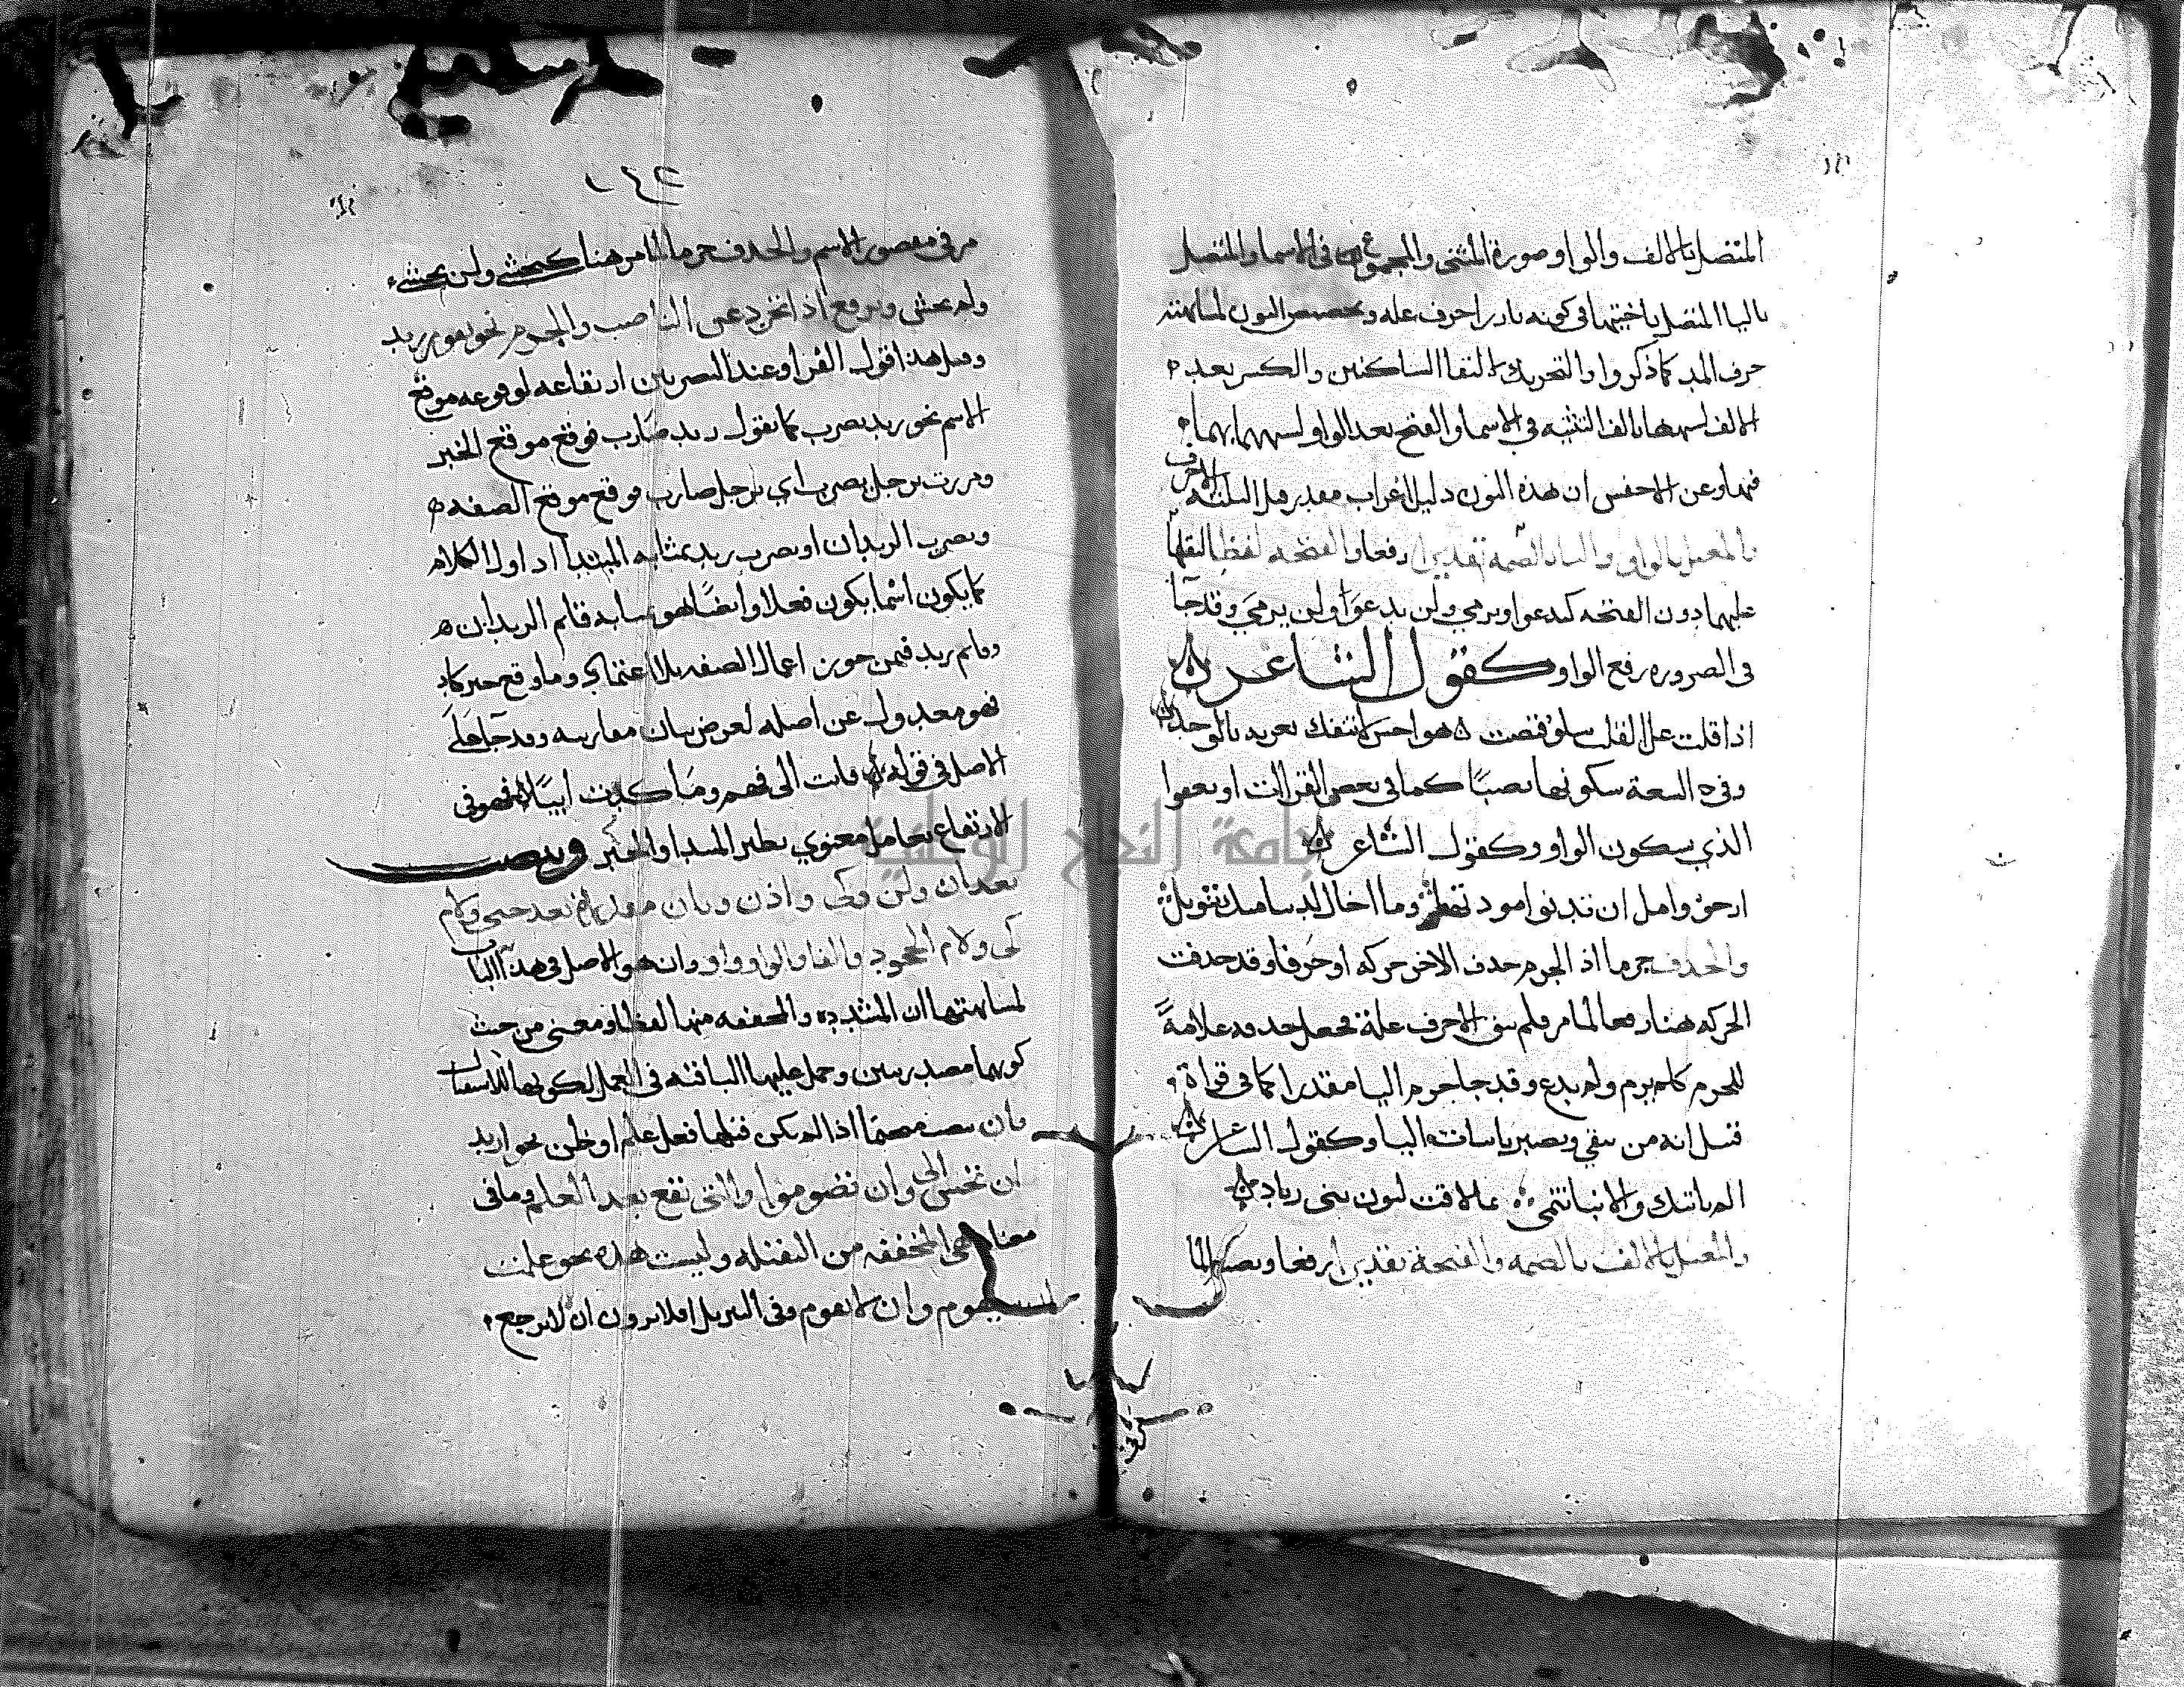 المتصل بالالف والواو صورة المثنى والمجموع في الاسما والمتصل
باليا المتصل باختيها في كونه بارزا حرف عله وتخصيص النون لمشابهته
حرف المد كما ذكروا والتحريك لالتقا الساكنين والكسر بعد
الالف لشبهها بالف التثنيه في الاسما والفتح بعد الواو لشبهها بها
فيها وعن الاخفش ان هذه النون دليل اعراب مقدر قبل الثلثه الاحرف
والمعتل بالواو واليا بالضمه تقديرا رفعا والفتحه لفظا لثقلها
عليهما دون الفتحه كيدعوا ويرمي ولن يدعوا ولن يرمي وقد جآ
في الضروره رفع الواو كقول الشاعر
اذا قلت علّ القلب يسلو قيضت هواجس لا تنفك تغريه بالوجد
وفي السعة سكونهما نصبًا كما في بعض القراات او يعفوا
الذي بسكون الواو وكقول الشاعر
ارجو وامل ان تدنوا مودتها وما اخال لدينا منك تنويل
والحذف جزما اذ الجزم حذف الاخر حركه او حرفا وقد حذفت
الحركه هنا رفعا لما مر فلم يبق الا حرف علة فجعل حذفه علامةً
للجزم كلم يرم ولم يدع وقد جا جزم اليا مقدرا كما في قراة
قنبل انه من يتقي ويصبر باسبات اليا وكقول الشاعر
الم ياتيك والانبا تنمي بما لاقت لبون بني زياد
والمعتل بالالف بالضمه والفتحة تقديرا رفعا ونصبا لما
١٤٢
مر في مقصور الاسم والحذف جزما لما مر هنا كيخشى ولن يخشى
ولم يخش ويرفع اذا تجرد عن الناصب والجزم نحو يقوم زيد
وقيل هذا قول الفرا وعند البصريين ارتفاعه لوقوعه موقع
الاسم نحو زيد يضرب كما تقول زيد ضارب فوقع موقع الخبر
ومررت برجل يضرب اي برجل ضارب فوقع موقع الصفه
ويضرب الزيدان او يضرب زيد بمثابه المبتدا اذ اول الكلام
كما يكون اسما يكون فعلا وايضًا فهو بمثابه قائم الزيدان
وقائم زيد فيمن جوز اعمال الصفه بلا اعتماد وما وقع خبر كاد
فهو معدول عن اصله لعرض بيان مقاربه وقد جآ على
الاصل في قوله فابت الى فهم وما كدت ايبًا فهو في
الارتفاع بعامل معنوي نظير المبتدا والخبر وينصب
بعد ان ولن وكى واذن وبان مقدرة بعد حتى ولام
كى ولام الجحود والفا والواو واو وان هو الاصل في هذا الباب
لمشابهتها ان المشدده والمخففه منها لفظا ومعنى من حيث
كونهما مصدريتين وحمل عليها الباقيه في العمل لكونها للاستقبال
فان ينصب اذا لم يكن قبلها فعل علم او ظن نحو اريد
ان تحسن الى وان تصوموا والتي تقع بعد العلم وما في
معناه هي المخففه من الثقيله وليست هذه نحو علمت
ان سيقوم وان لا يقوم وفي التنزيل افلا يرون ان لا يرجع
جامعة النجاح الوطنية